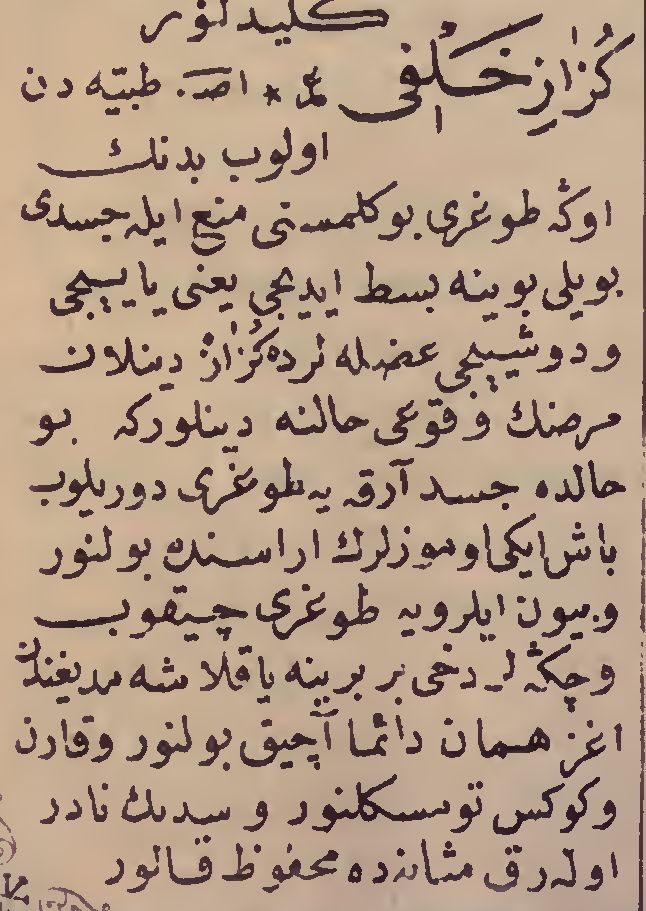 كليدلنور
كُزازِ خَلْفى * اصـ. طبيّه دن
اولوب بدنك
اوڭه طوغرى بوكلمسنى منع ايله جسدى
بويلى بوينه بسط ايديجى يعنى ياييجى
و دوشييجى عضله لرده كُزاز دينلان
مرضك وقوعى حالنه دينلوركه بو
حالده جسد آرقه يه طوغرى دوريلوب
باش ايكى اوموزلرك اراسنده بولنور
و بيون ايلرويه طوغرى چيقوب
و چكه لر دخى بر برينه ياقلاشه مديغندن
اغز همان دائما آچيق بولنور وقارن
و كوكس توسسكلنور و سديك نادر
اوله رق مثانه ده محفوظ قالور